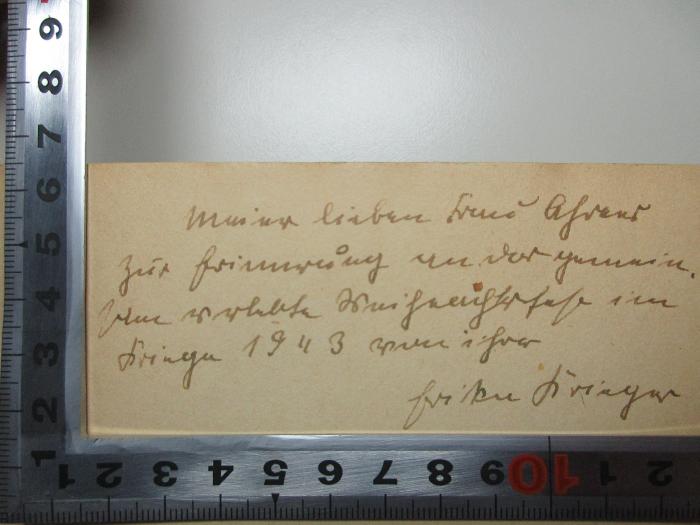 Meiner lieben Frau Ahrens
zur Erinnerung an das gemein-
sam verlebte Weihnachtsfest im
Kriege 1943 von ihrer
Erika Krieger
9
8
7
6
5
4
3
2
1
1 2 3 4 5 6 7 8 9 10 1 2